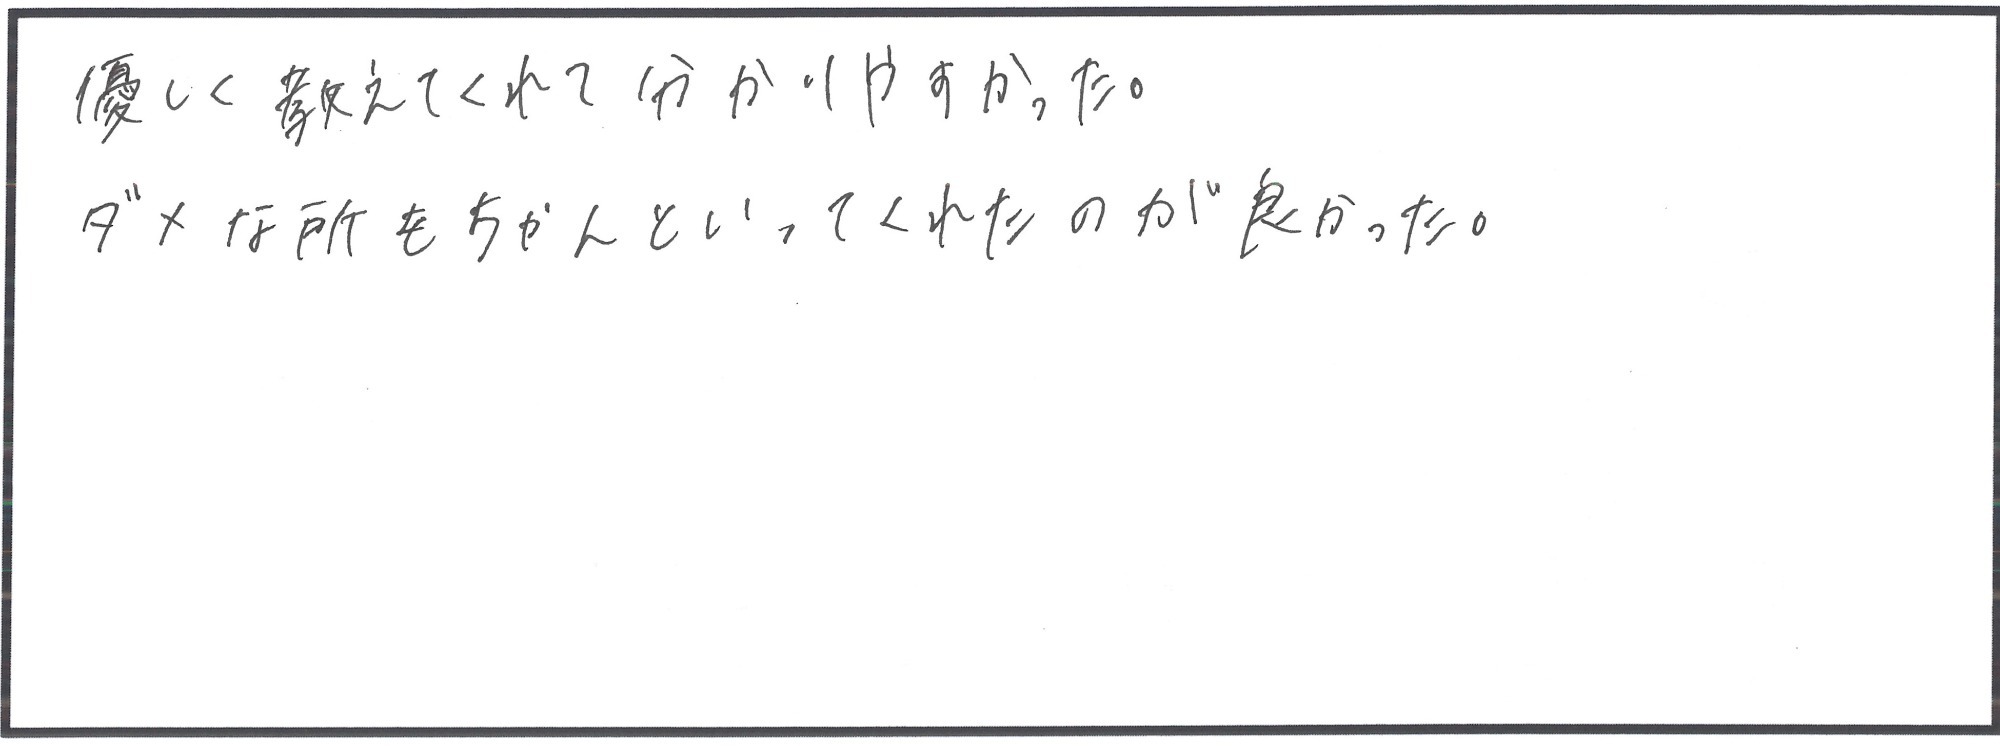 優しく教えてくれて分かりやすかった。
ダメな所もちゃんといってくれたのが良かった。